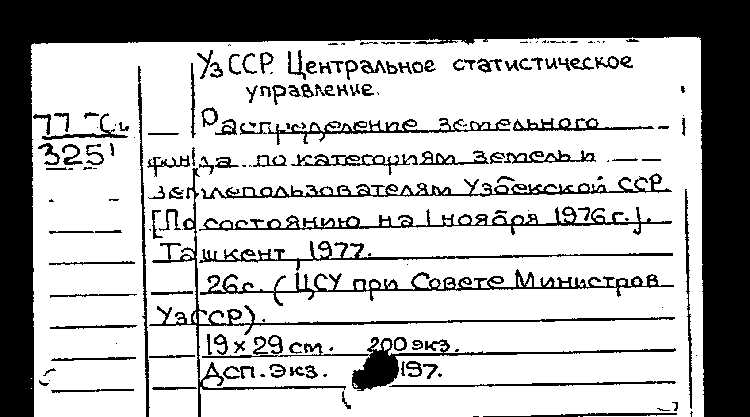 УзССР. Центральное статистическое
управление.
77
Распределение земельного
325¹
фонда по категориям земель и
землепользователям Узбекской ССР.
[По состоянию на 1 ноября 1976 г.].
Ташкент, 1977.
26с. (ЦСУ при Совете Министров
УзССР).
19×29 cm. 200 экз.
Дсп. экз. 197.